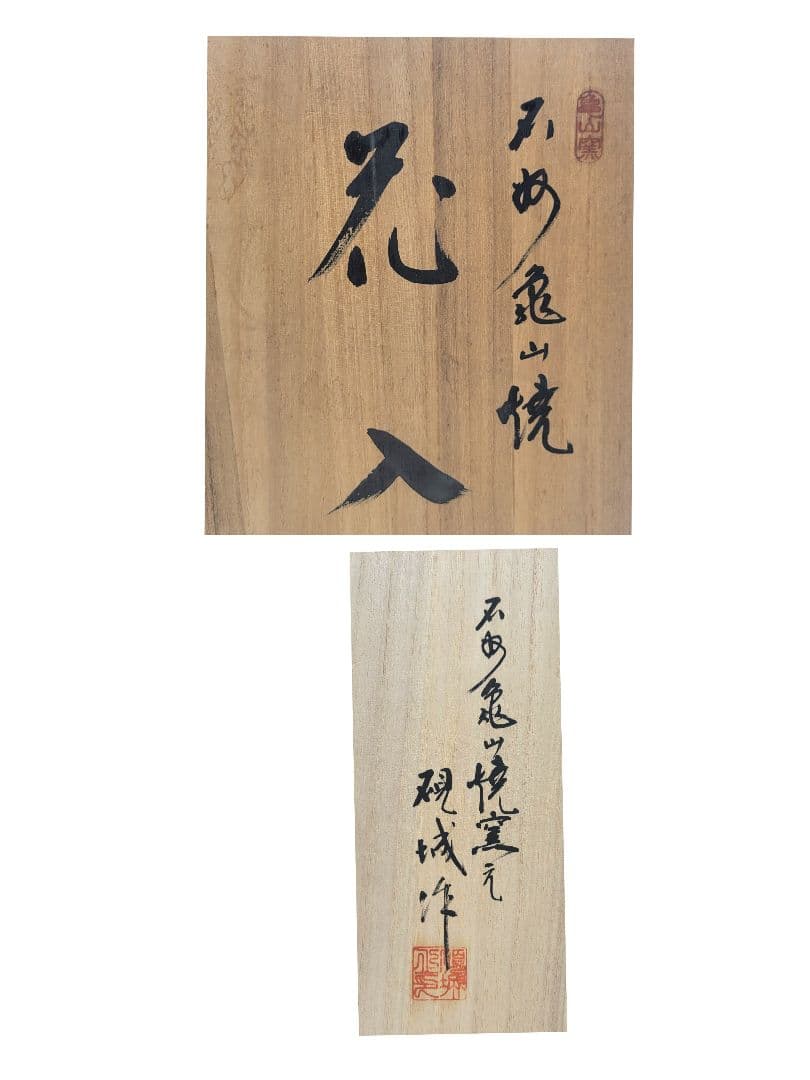 亀山窯
石州亀山焼
花入
石州亀山焼窯元
硯城作